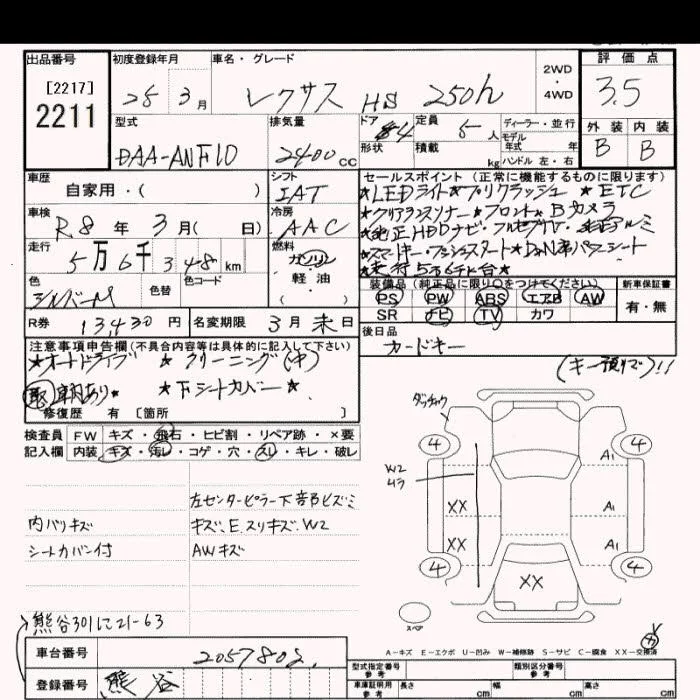 出品番号 初度登録年月 車名・グレード 評価点
[2217]
2211
28 3月 レクサス HS 250h
2WD
・
4WD
3.5
型式 排気量 ドア 定員 ディーラー・並行
DAA-ANF10 2400cc 4 5人
形状 積載 kg
モデル年式 年式
ハンドル 左・右
外装 内装
B B
車歴 シフト セールスポイント (正常に機能するものに限ります)
自家用・( ) IAT
★LEDライト★プリクラッシュ ★ETC
車検 冷房
R.8年 3月( 日) AAC
★クリアランスソナー★フロント★Bカメラ
★純正HDDナビ・フルセグTV・純正アルミ
走行 燃料
5万6千348km ガソリン
★スマートキー・プッシュスタート★D&N席パワーシート
★走行5万6千K台★
軽油
( )
色 色替 色コード
シルバーM
装備品 (純正品に限り○をつけてください) 新車保証書
PS PW ABS エアB AW
SR ナビ TV カワ
有・無
R券 13,430円 名変期限 3月末日
後日品
カードキー
注意事項申告欄 (不具合内容等は具体的に記入して下さい)
★オートドライブ ★クリーニング(中)
(キー預リで)!!
取説あり★ ★下シートカバー★
修復歴 有 [箇所 ]
検査員 FW キズ・飛石・ヒビ割・リペア跡・×要
記入欄 内装 キズ・汚レ・コゲ・穴・スレ・キレ・破レ
左センターピラー下部ヒズミ
内バリキズ キズ、E.スリキズ、W2
シートカバー付 AWキズ
4 4
W2
ムラ
A1
XX A1
XX A1
4 4
XX
スペア
熊谷301に21-63
A-キズ E-エクボ U-凹み W-補修跡 S-サビ C-腐食 XX-交換済
車台番号 2057802
登録番号 熊谷
型式指定番号 類別区分番号
参考 参考
車庫証明用 長さ cm 幅 cm 高さ cm
参考